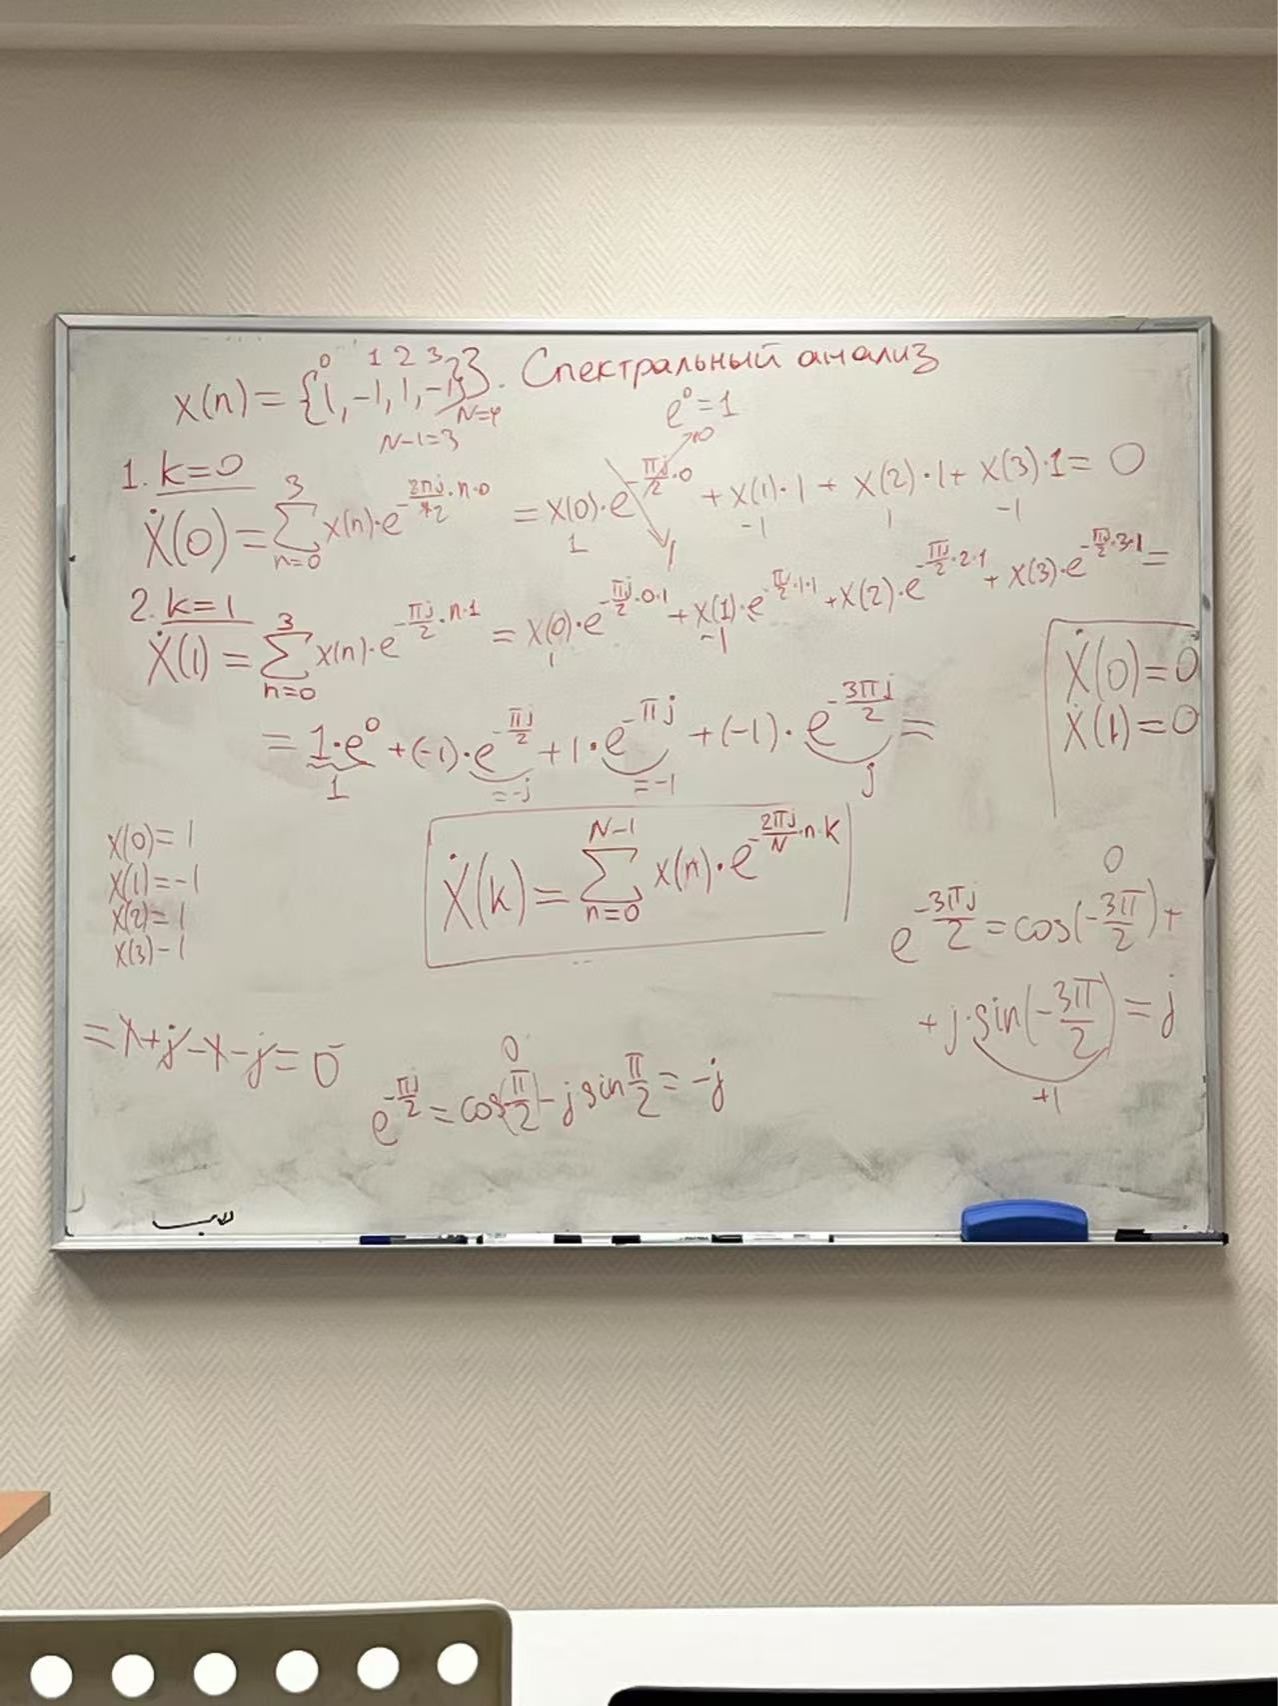 0 1 2 3
x(n) = {1, -1, 1, -1}. Спектральный анализ
N=4
N-1=3
e⁰ = 1
1. k=0
Ẋ(0) = ∑_{n=0}^{3} x(n)·e^{-2πj/4 2·n·0} = x(0)·e^{-πj/2·0} + x(1)·1 + x(2)·1 + x(3)·1 = 0
1 1 -1 1 -1
2. k=1
Ẋ(1) = ∑_{n=0}^{3} x(n)·e^{-πj/2·n·1} = x(0)·e^{-πj/2·0·1} + x(1)·e^{-πj/2·1·1} + x(2)·e^{-πj/2·2·1} + x(3)·e^{-πj/2·3·1} =
1 -1
= 1·e⁰ + (-1)·e^{-πj/2} + 1·e^{-πj} + (-1)·e^{-3πj/2} =
1 =-j =-1 j
Ẋ(0)=0
Ẋ(1)=0
x(0)=1
x(1)=-1
x(2)=1
x(3)-1
Ẋ(k) = ∑_{n=0}^{N-1} x(n)·e^{-2πj/N·n·k}
0
e^{-3πj/2} = cos(-3π/2) +
+ j·sin(-3π/2) = j
+1
= 1+j-1-j = 0
0
e^{-πj/2} = cos(π/2) - j sin π/2 = -j